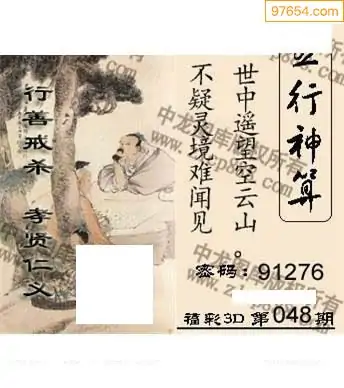 97654.com
行神算
世中遥望空云山
不疑灵境难闻见。
行善戒杀 孝贤仁义
密码:91276
福彩3D 第048期